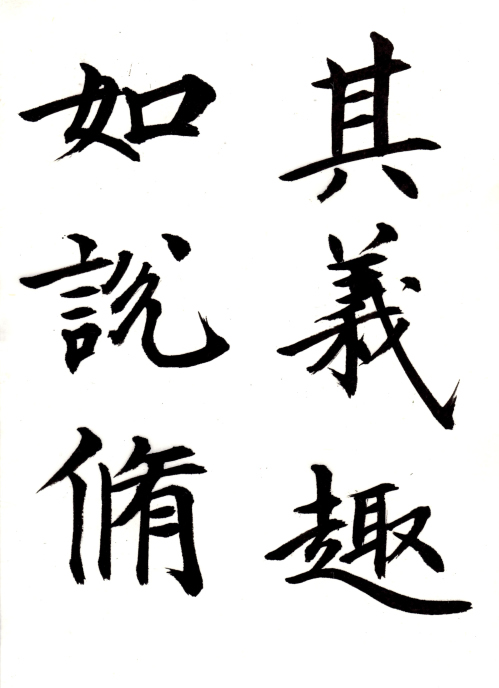 其義趣
如說脩